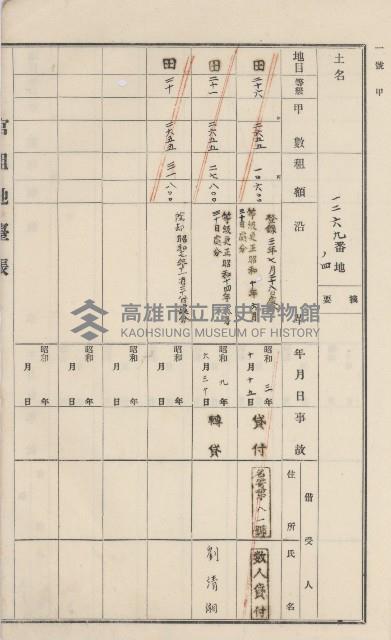 一號甲
土名
一二六九番地ノ四
摘要
地目
等級
甲數
租額
沿革
年月日
事故
借受人
住所
氏名
田
二十六
二六五五
一〇六〇〇
登錄三年七月二十八日
等級更正昭和十年六月三十日處分
昭和三年十月十五日
貸付
名簿第八一號
數人貸付
田
二十一
二六五五
二七八〇〇
等級更正昭和十四年
三十日處分
昭和九年六月三十日
轉貸
劉清潤
田
二十
二六五五
三一八〇〇
昭和 年 月 日
昭和 年 月 日
昭和 年 月 日
昭和 年 月 日
官租地臺帳
高雄市立歷史博物館
KAOHSIUNG MUSEUM OF HISTORY